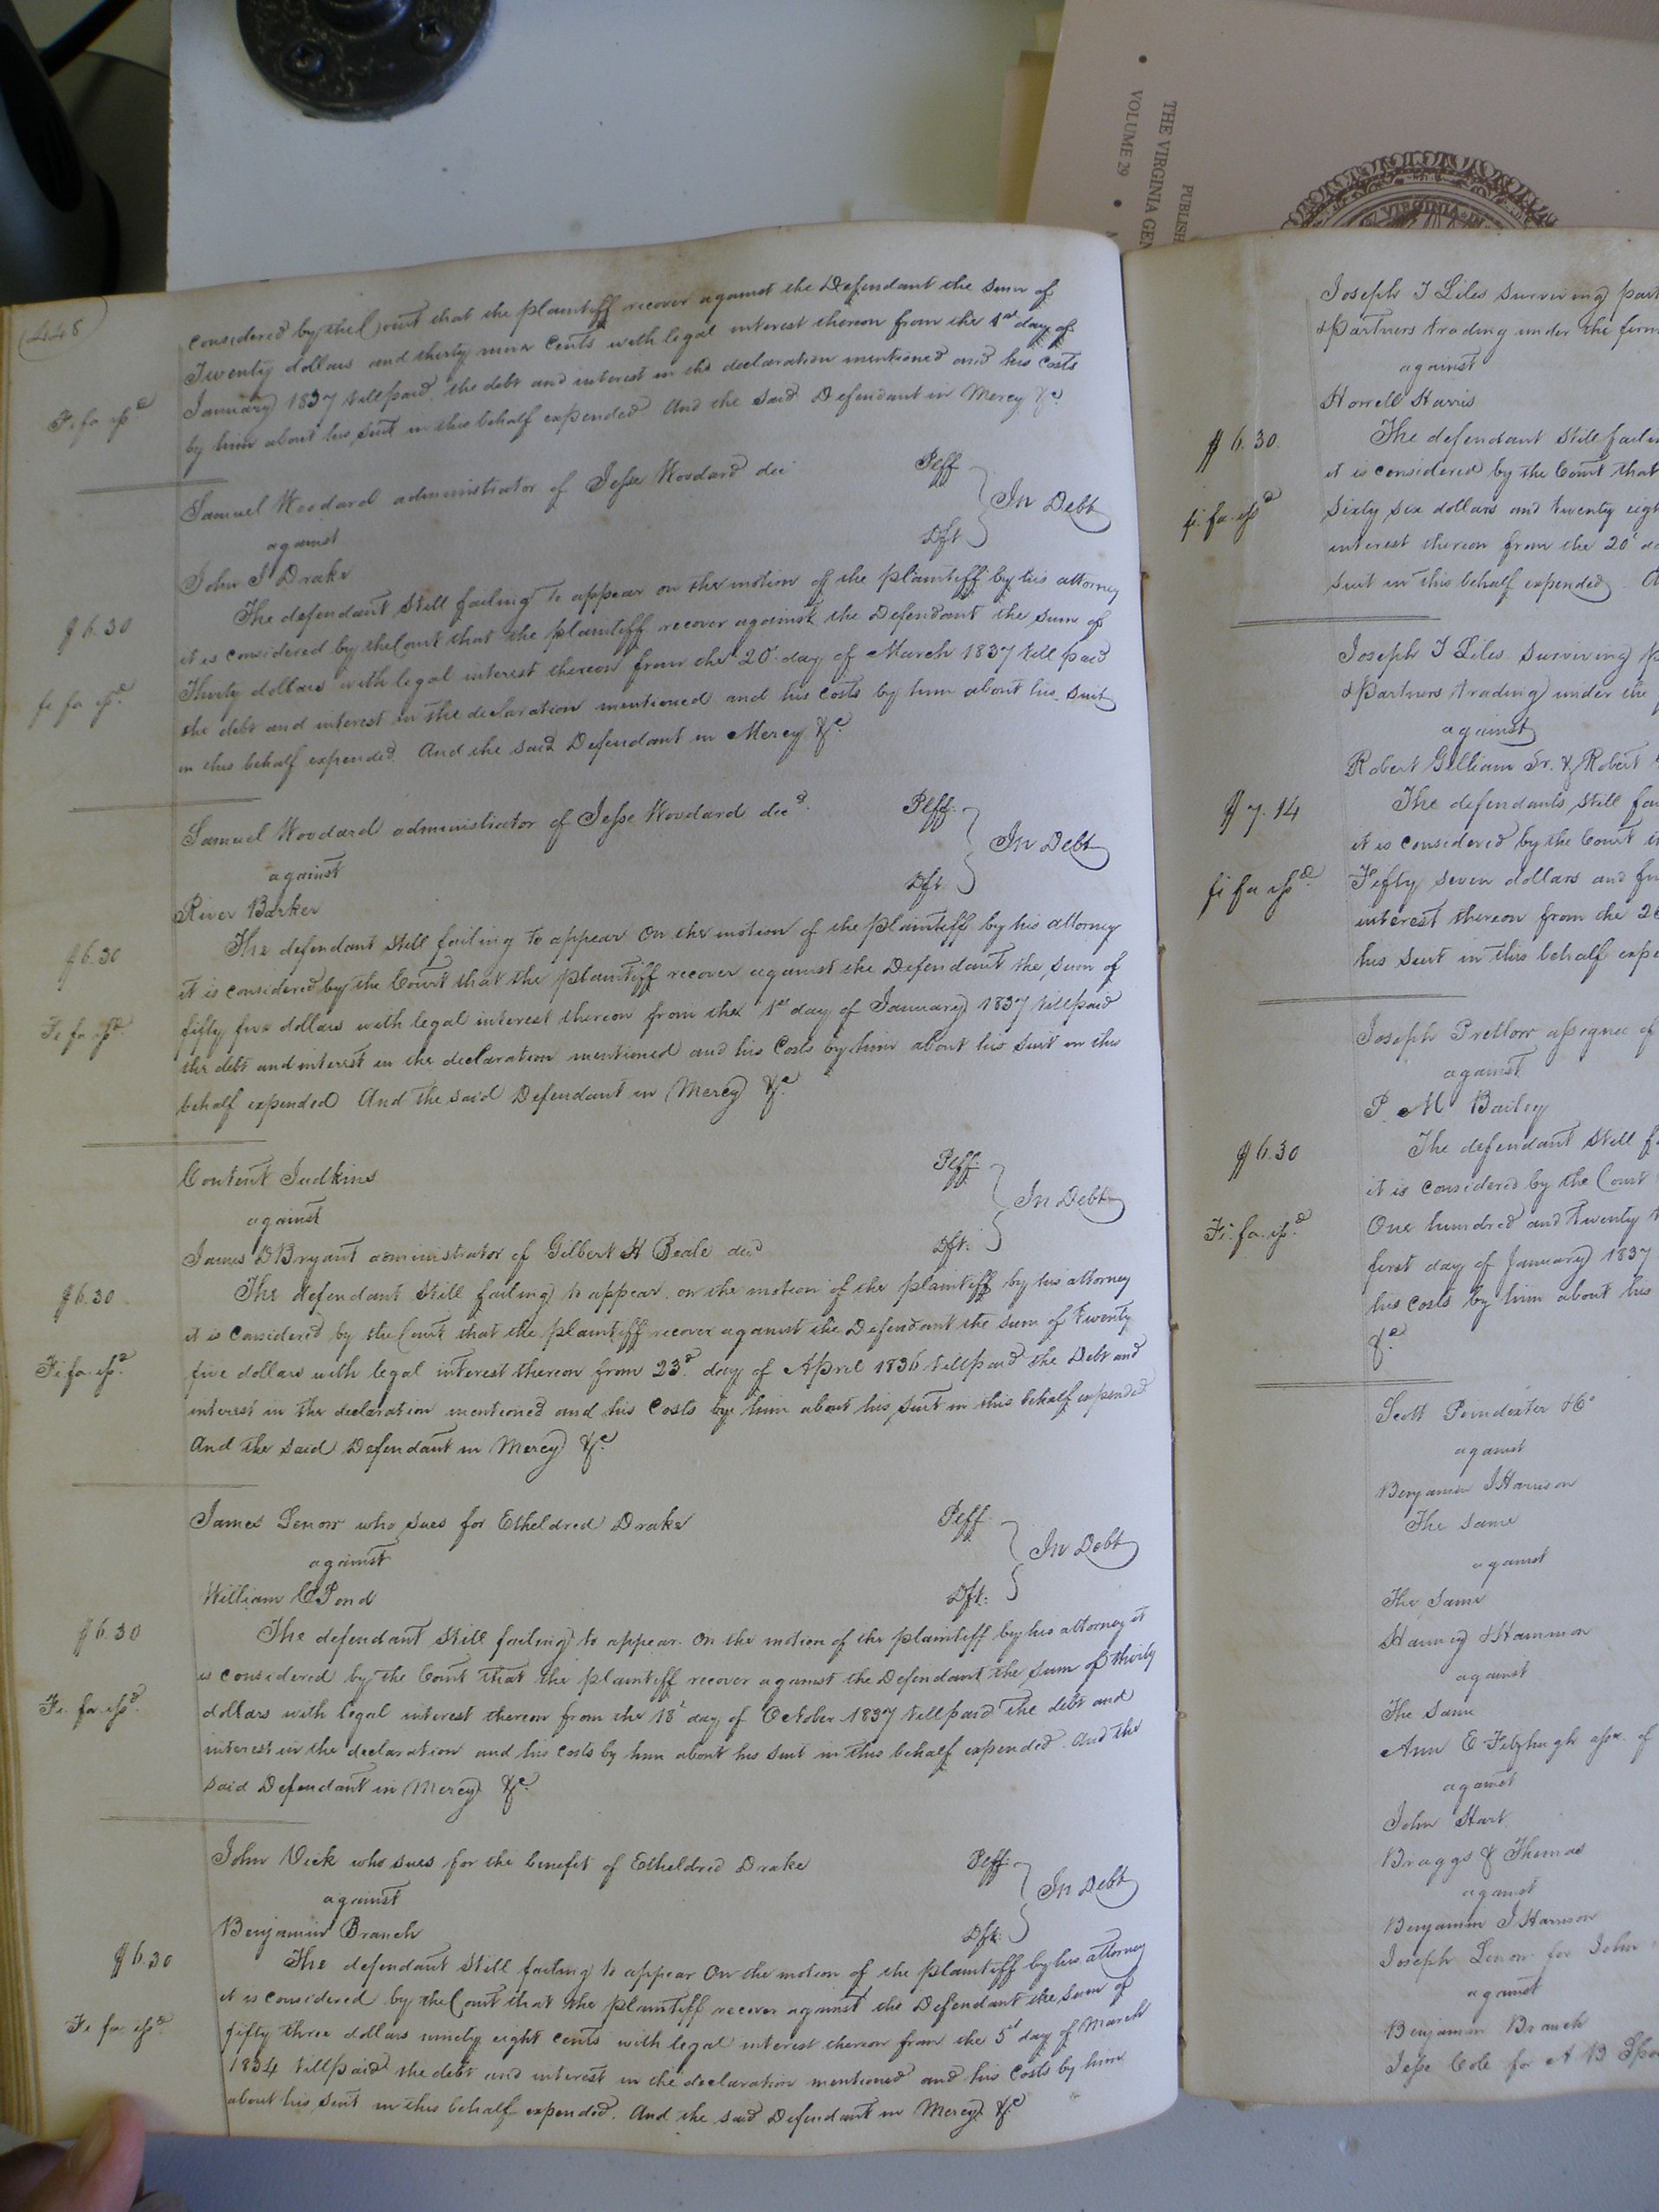 448
considered by the Court that the plaintiff recover against the Defendant the sum of
Twenty dollars and thirty nine Cents with legal interest thereon from the 1st day of
January 1837 till paid, the debt and interest in the declaration mentioned and his Costs
Fi fa issd
by him about his suit in this behalf expended And the said Defendant in Mercy &c.
Samuel Woodard administrator of Jesse Woodard dec Plff
against In Debt
John J Drake Dft
The defendant still failing to appear on the motion of the plaintiff by his attorney
$6.30
it is considered by the Court that the plaintiff recover against the Defendant the sum of
Thirty dollars with legal interest thereon from the 20 day of March 1837 till paid
fi fa issd
the debt and interest in the declaration mentioned and his costs by him about his suit
in this behalf expended. And the said Defendant in Mercy &c
Samuel Woodard administrator of Jesse Woodard decd. Plff.
against In Debt
River Barker Dft
The defendant still failing to appear On the motion of the plaintiff by his attorney
$6.30
it is considered by the Court that the plaintiff recover against the Defendant the sum of
fifty five dollars with legal interest thereon from the 1st day of January 1837 till paid
Fi fa issd.
the debt and interest in the declaration mentioned and his Costs by him about his suit in this
behalf expended And the said Defendant in Mercy &c.
Content Judkins Plff.
against In Debt
James D Bryant administrator of Gilbert H Beale decd Dft.
The defendant still failing to appear. on the motion of the plaintiff by his attorney
$6.30
it is considered by the Court that the plaintiff recover against the Defendant the sum of twenty
five dollars with legal interest thereon from 23d. day of April 1836 till paid the Debt and
Fi fa issd.
interest in the declaration mentioned and his Costs by him about his suit in this behalf expended
And the said Defendant in Mercy &c.
James Lenow who sues for Etheldred Drake Plff
against In Debt
William C Pond Dft.
The defendant still failing to appear. On the motion of the plaintiff by his attorney it
$6.30
is considered by the Court that the plaintiff recover against the Defendant the sum of thirty
dollars with legal interest thereon from the 18 day of October 1837 till paid the debt and
Fi. fa issd.
interest in the declaration and his costs by him about his suit in this behalf expended. And the
said Defendant in Mercy &c.
John Vick who sues for the benefit of Etheldred Drake Plff.
against In Debt
Benjamin Branch Dft.
The defendant still failing to appear On the motion of the plaintiff by his attorney
$6.30
it is considered by the Court that the plaintiff recover against the Defendant the sum of
fifty three dollars ninety eight cents with legal interest thereon from the 5 day of March
Fi fa issd.
1834 till paid the debt and interest in the declaration mentioned and his Costs by him
about his suit in this behalf expended. And the said Defendant in Mercy &c
PUBLISH
THE VIRGINIA GEN
VOLUME 29
VIRGINIA IN
Joseph T Liles surviving part
& Partners trading under the firm
against
Horrell Harris
The defendant still failin
$6.30
it is considered by the Court that
Sixty six dollars and twenty eigh
fi. fa. issd
interest thereon from the 20
suit in this behalf expended.
Joseph T Liles surviving p
& Partners trading under the
against
Robert Gilliam Sr. & Robert
The defendants still fai
$7.14
it is considered by the Court
Fifty seven dollars and fi
fi fa issd.
interest thereon from the
his suit in this behalf expe
Joseph Pretlow assignee of
against
P. M Bailey
The defendant still f
$6.30
it is considered by the Court
One hundred and twenty
Fi. fa. issd.
first day of January 1837
his costs by him about his
&c
Scott Poindexter & Co
against
Benjamin J Harrison
The same
against
The same
Hammon
against
The same
Ann E Fitzhugh of
against
John Hart
Braggs & Thomas
against
Benjamin J Harrison
Joseph Lenow for John
against
Benjamin Branch
Jesse Cole for A B Spo